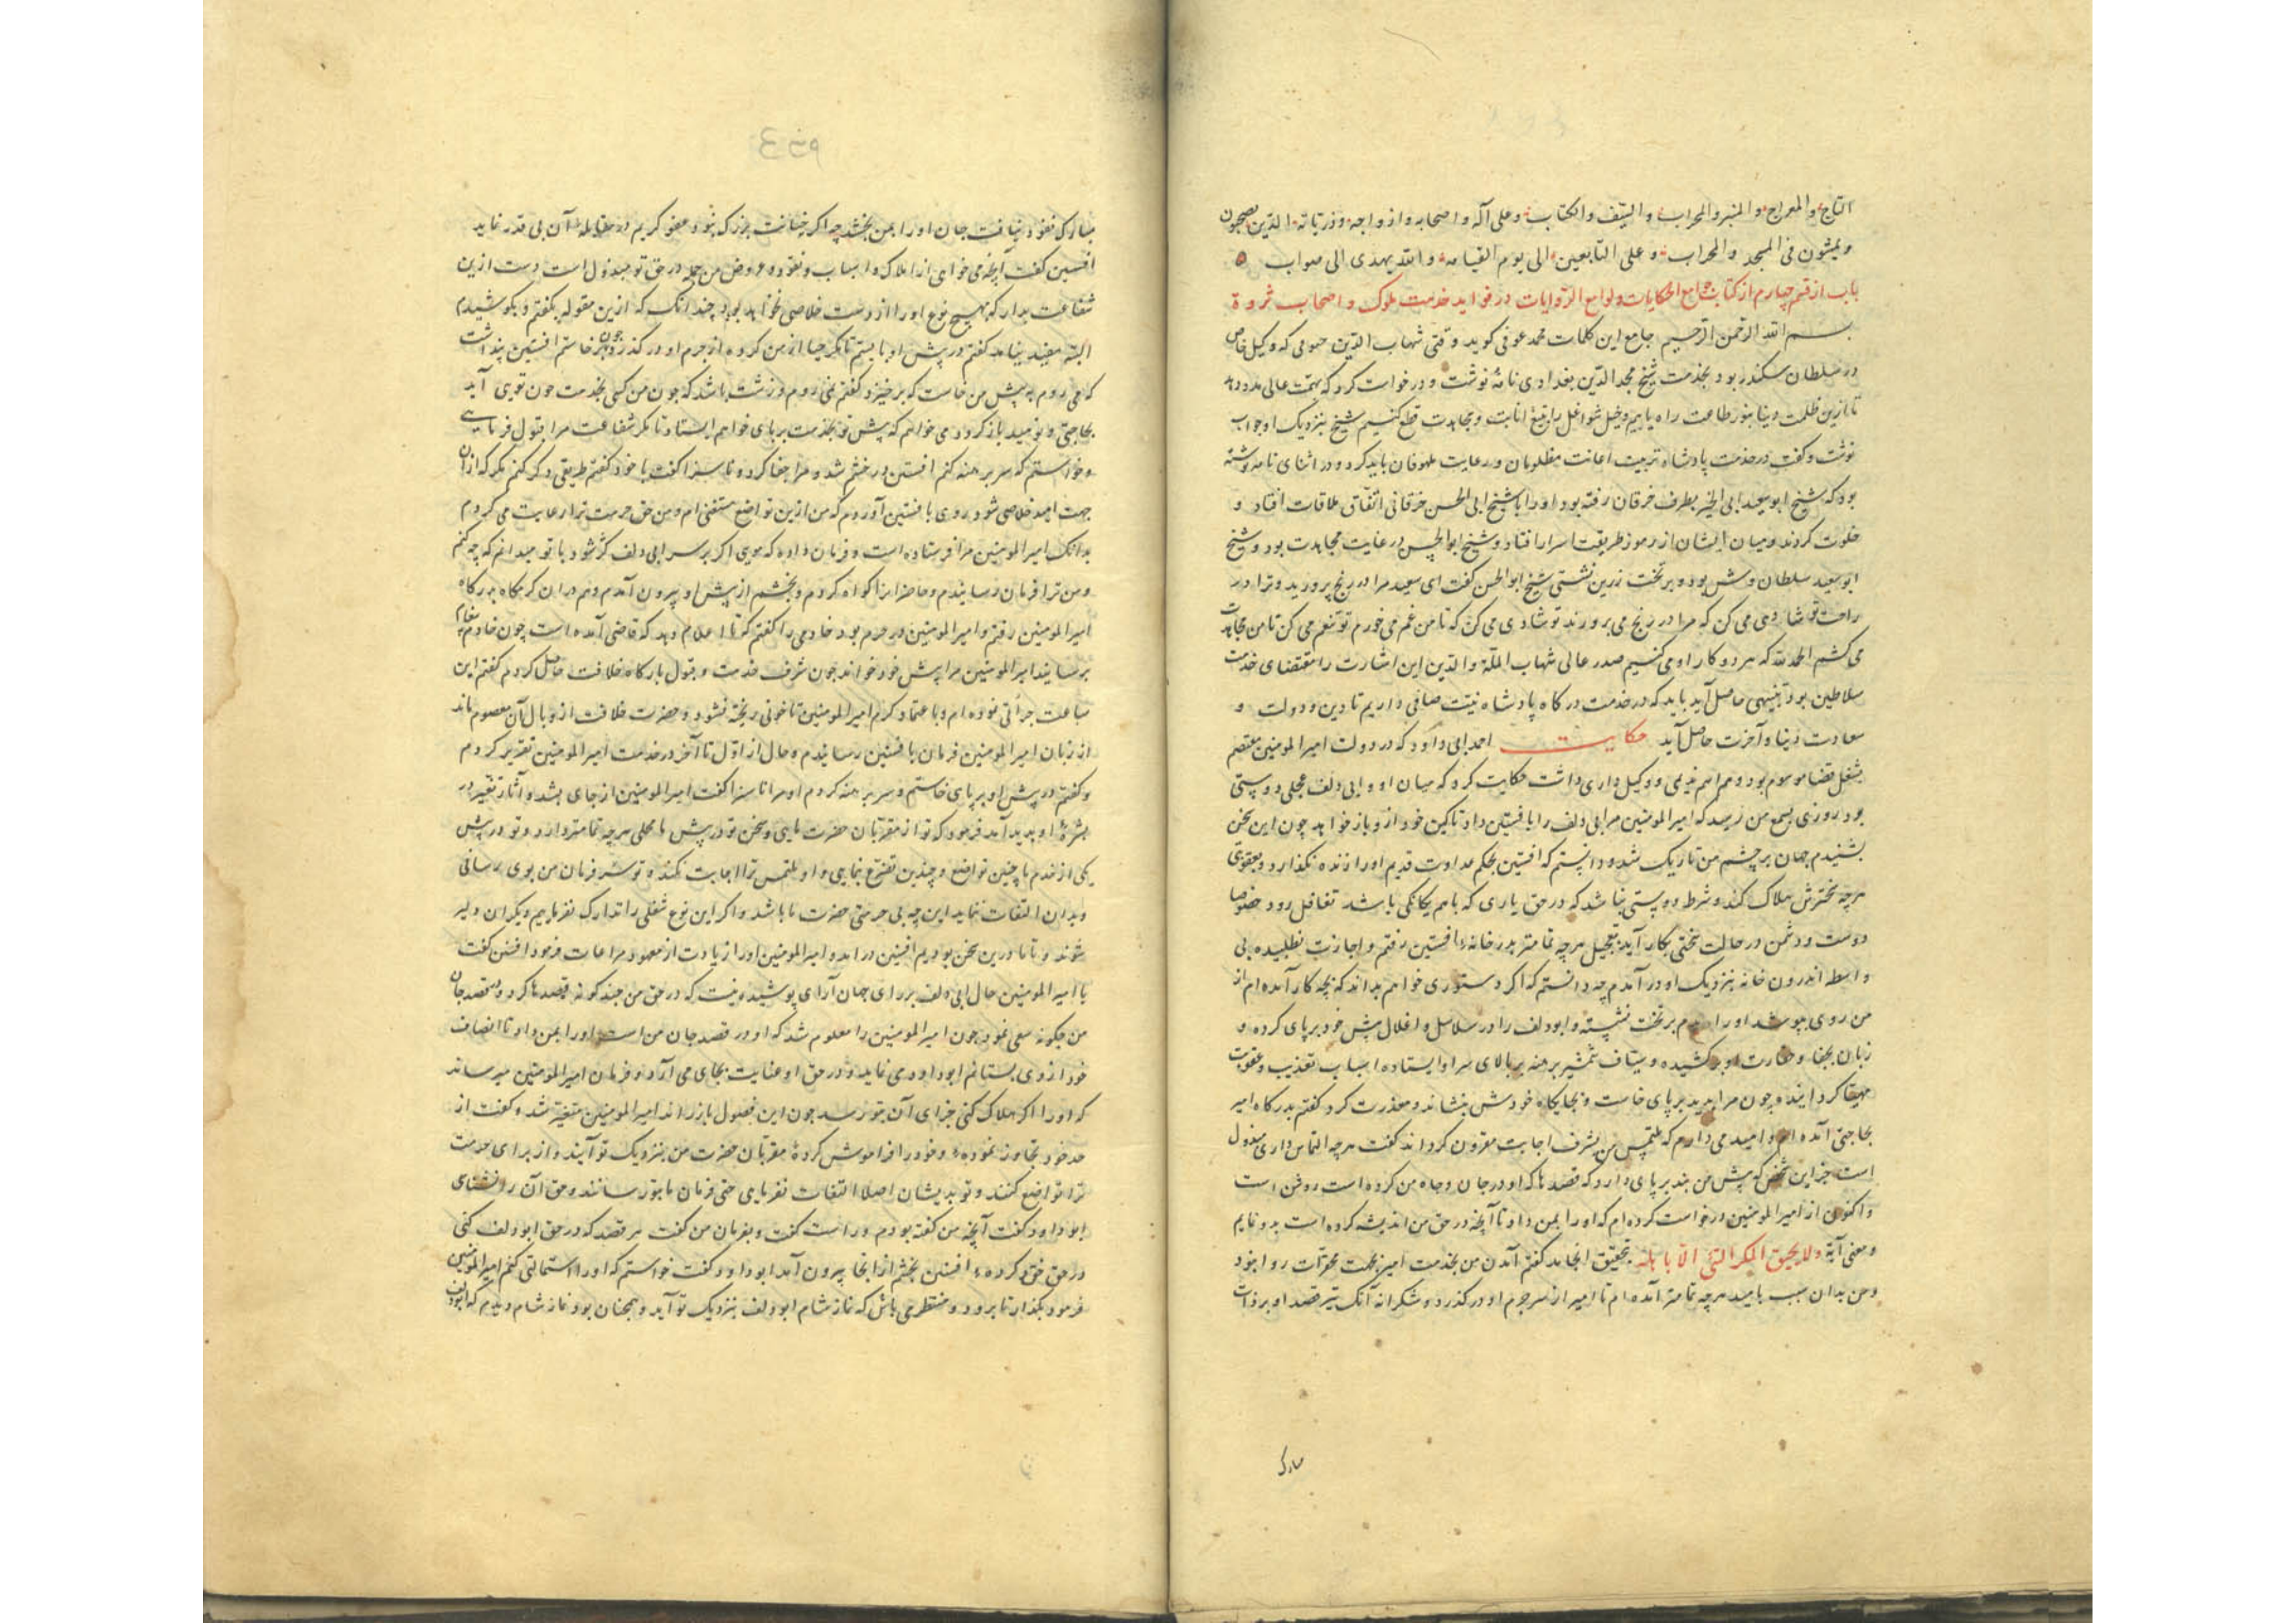 التاج والمعراج والمنبر والمحراب والسیف والکتاب وعلی آله واصحابه وازواجه وذریاته الذین یصحبون
ویمشون فی المسجد والمحراب وعلی التابعین الی یوم القیامه والله یهدی الی صواب ه
باب از قسم چهارم از کتاب جوامع الحکایات ولوامع الروایات در فواید خدمت ملوک و اصحاب ثروة
بسم الله الرحمن الرحیم جامع این کلمات محمد عوفی کوید وقتی شهاب الدین حمومی که وکیل خاص
در سلطان سکندر بود بخدمت شیخ مجد الدین بغدادی نامهٔ نوشت ودرخواست کرد که بهمت عالی مدد دهد
تا ازین ظلمت دنیا بنور طاعت راه یابیم وخیل شواغل را بتیغ انابت ومجاهدت قطع کنیم شیخ بنزدیک او جواب
نوشت وکفت در خدمت پادشاه تربیت اعانت مظلومان ورعایت ملهوفان باید کرد ودر اثنای نامه نوشته
بود که شیخ ابو سعید ابی الخیر بطرف خرقان رفته بود اورا با شیخ ابی الحسن خرقانی اتفاق ملاقات افتاد و
خلوت کردند ومیان ایشان از رموز طریقت اسرار افتاد وشیخ ابو الحسن در غایت مجاهدت بود وشیخ
ابو سعید سلطان وش بود وبر تخت زرین نشستی شیخ ابو الحسن کفت ای سعید مرا در رنج پرورید وترا در
راحت تو شادی می کن که مرا در رنج می پرورند تو شادی می کن که تا من غم می خورم تو تنعم می کن تا من مجاهدت
می کشم الحمد لله که هر دو کار او می کنیم صدر عالی شهاب الملة والدین این اشارت را مقتضای خدمت
سلاطین بود تنبیهی حاصل آید باید که در خدمت درکاه پادشاه نیت صافی داریم تا دین ودولت و
سعادت دنیا وآخرت حاصل آید حکایت احمد ابی داود که در دولت امیر المومنین معتصم
بشغل قضا موسوم بود وهم اسم ندیمی ووکیل داری داشت حکایت کرد که میان او وابی دلف عجلی دوستی
بود روزی بسمع من رسید که امیر المومنین مر ابی دلف را بافشین داد تا کین خود ازو باز خواهد چون این سخن
بشنیدم جهان بر چشم من تاریک شد ودانستم که افشین بحکم عداوت قدیم اورا زنده نکذارد وبعقوبتی
هرچه سختترش هلاک کند وشرط دوستی نباشد که در حق یاری که با هم یکانکی باشد تغافل رود خصوصا
دوست ودشمن در حالت سختی بکار آید بتعجیل هرچه تمامتر بدر خانهٔ افشین رفتم واجازت نطلبیده بی
واسطه اندرون خانه بنزدیک او در آمدم چه دانستم که اکر دستوری خواهم بداند که بچه کار آمده ام از
من روی بپوشد اورا دیدم بر تخت نشسته وابو دلف را در سلاسل واغلال پیش خود بر پای کرده و
زبان بجفا وحقارت او بر کشیده وسیاف شمشیر برهنه بر بالای سر او ایستاده اسباب تعذیب وعقوبت
مهیا کردانیده چون مرا بدید بر پای خاست وبجایکاه خودش بنشاند ومعذرت کرد کفتم بدرکاه امیر
بحاجتی آمده ام وامید می دارم که ملتمس من بشرف اجابت مقرون کرداند کفت هرچه التماس داری مبذول
است جز این شخص که پیش من بند بر پای دارد که قصدها که او در جان وجاه من کرده است روشن است
واکنون از امیر المومنین درخواست کرده ام که اورا بمن داد تا آنچه در حق من اندیشه کرده است بدو نمایم
ومعنی آیة ولا یحیق المکر السیئ الا باهله بتحقیق انجامد کفتم آمدن من بخدمت امیر بجهت محقرات روا نبود
ومن بدان سبب بامید هرچه تمامتر آمده ام تا امیر از سر جرم او در کذرد وشکرانه آنک تیر قصد او بر ذات
مبارک
مبارک نفوذ نیافت جان اورا بمن بخشد چه اکر خیانت بزرک بود عفو کریم در مقابلهٔ آن بی قدر نماید
افشین کفت آنچه می خواهی از املاک واسباب ونقود وعروض من جمله در حق تو مبذول است دست ازین
شفاعت بدار که بهیچ نوع اورا از دست خلاصی نخواهد بود چندانک که ازین مقوله بکفتم وبکوشیدم
البته مفید نیامد کفتم در پیش او بایستم تا مکر حیا از من کرده از جرم او در کذرد چون بر خاستم افشین پنداشت
که می روم پیش من خاست که برخیزد کفتم نمی روم وزشت باشد که چون من کسی بخدمت چون تویی آید
بحاجتی ونومید باز کردد می خواهم که پیش تو بخدمت بر پای خواهم ایستاد تا مکر شفاعت مرا قبول فرمایی
وخواستم که سر برهنه کنم افشین در خشم شد ومرا جفا کرد وناسزا کفت با خود کفتم طریقی دکر کنم مکر که از آن
جهت امید خلاصی شود روی بافشین آوردم که من ازین تواضع مستغنی ام ومن حق حرمت ترا رعایت می کردم
بدانک امیر المومنین مرا فرستاده است وفرمان داده که مویی اکر بر سر ابی دلف کژ شود با تو میدانم که چه کنم
ومن ترا فرمان رسانیدم وحاضرانرا کواه کردم وبخشم از پیش او بیرون آمدم وهم دران کرمکاه بدرکاه
امیر المومنین رفتم وامیر المومنین در حرم بود خادمی را کفتم که تا اعلام دهد که قاضی آمده است چون خادم پیغام
برسانید امیر المومنین مرا پیش خود خواند چون شرف خدمت وقبول بارکاه خلافت حاصل کردم کفتم این
ساعت جرأتی نموده ام وباعتماد کرم امیر المومنین تا خونی ریخته نشود وحضرت خلافت از وبال آن معصوم ماند
از زبان امیر المومنین فرمان بافشین رسانیدم وحال از اول تا آخر در خدمت امیر المومنین تقریر کردم
وکفتم در پیش او بر پای خاستم وسر برهنه کردم او مرا ناسزا کفت امیر المومنین از جای بشد وآثار تغیر در
بشرهٔ او پدید آمد فرمود که تو از مقربان حضرت مایی وسخن تو در پیش ما محلی هرچه تمامتر دارد وتو در پیش
یکی از خدم با چنین تواضع وچندین تضرع بنمایی واو ملتمس ترا اجابت نکند وتو شرف فرمان من بوی رسانی
وبدان التفات ننماید این چه بی حرمتی حضرت ما باشد واکر این نوع شغلی را تدارک نفرماییم دیکران دلیر
شوند وتا ما درین سخن بودیم افشین در آمد وامیر المومنین اورا زیادت از معهود مراعات فرمود افشین کفت
یا امیر المومنین حال ابی دلف بر رای جهان آرای پوشیده نیست که در حق من چند کونه قصدها کرد ودر قصد جان
من چکونه سعی نمود چون امیر المومنین را معلوم شد که او در قصد جان من است اورا بمن داد تا انصاف
خود ازوی بستانم ابو داود می نماید ودر حق او عنایت بجای می آرد وفرمان امیر المومنین میرساند
که اورا اکر هلاک کنی جزای آن بتو رسد چون این فصول باز راند امیر المومنین متغیر شد وکفت از
حد خود تجاوز نمودهٔ وخود را فراموش کردهٔ مقربان حضرت من بنزدیک تو آیند واز برای حرمت
ترا تواضع کنند وتو بدیشان اصلا التفات نفرمایی حتی فرمان ما بتو رسانند وحق آن را نشناسی
ابو داود کفت آنچه من کفته بودم وراست کفت وبفرمان من کفت هر قصد که در حق ابو دلف کنی
در حق خود کردهٔ افشین بخشم از آنجا بیرون آمد ابو داود کفت خواستم که اورا استمالتی کنم امیر المومنین
فرمود بکذار تا برود ومنتظر می باش که نماز شام ابو دلف بنزدیک تو آید وهمچنان بود نماز شام دیدم که ابو دلف